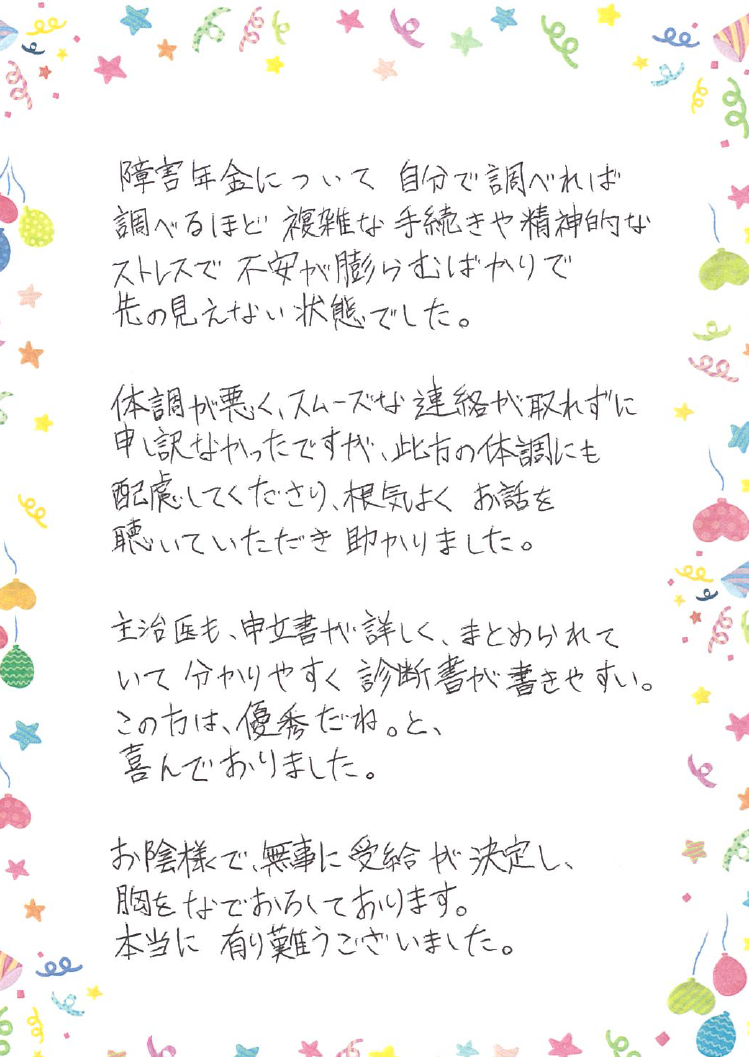 障害年金について 自分で調べれば
調べるほど 複雑な 手続きや精神的な
ストレスで 不安が膨らむばかりで
先の見えない状態でした。
体調が悪く、スムーズな 連絡が取れずに
申し訳なかったですが、此方の体調にも
配慮してくださり、根気よく お話を
聴いていただき 助かりました。
主治医も、申立書が詳しく、まとめられて
いて 分かりやすく 診断書が書きやすい。
この方は、優秀だね。と、
喜んでおりました。
お陰様で、無事に 受給が決定し、
胸をなでおろしております。
本当に 有り難うございました。